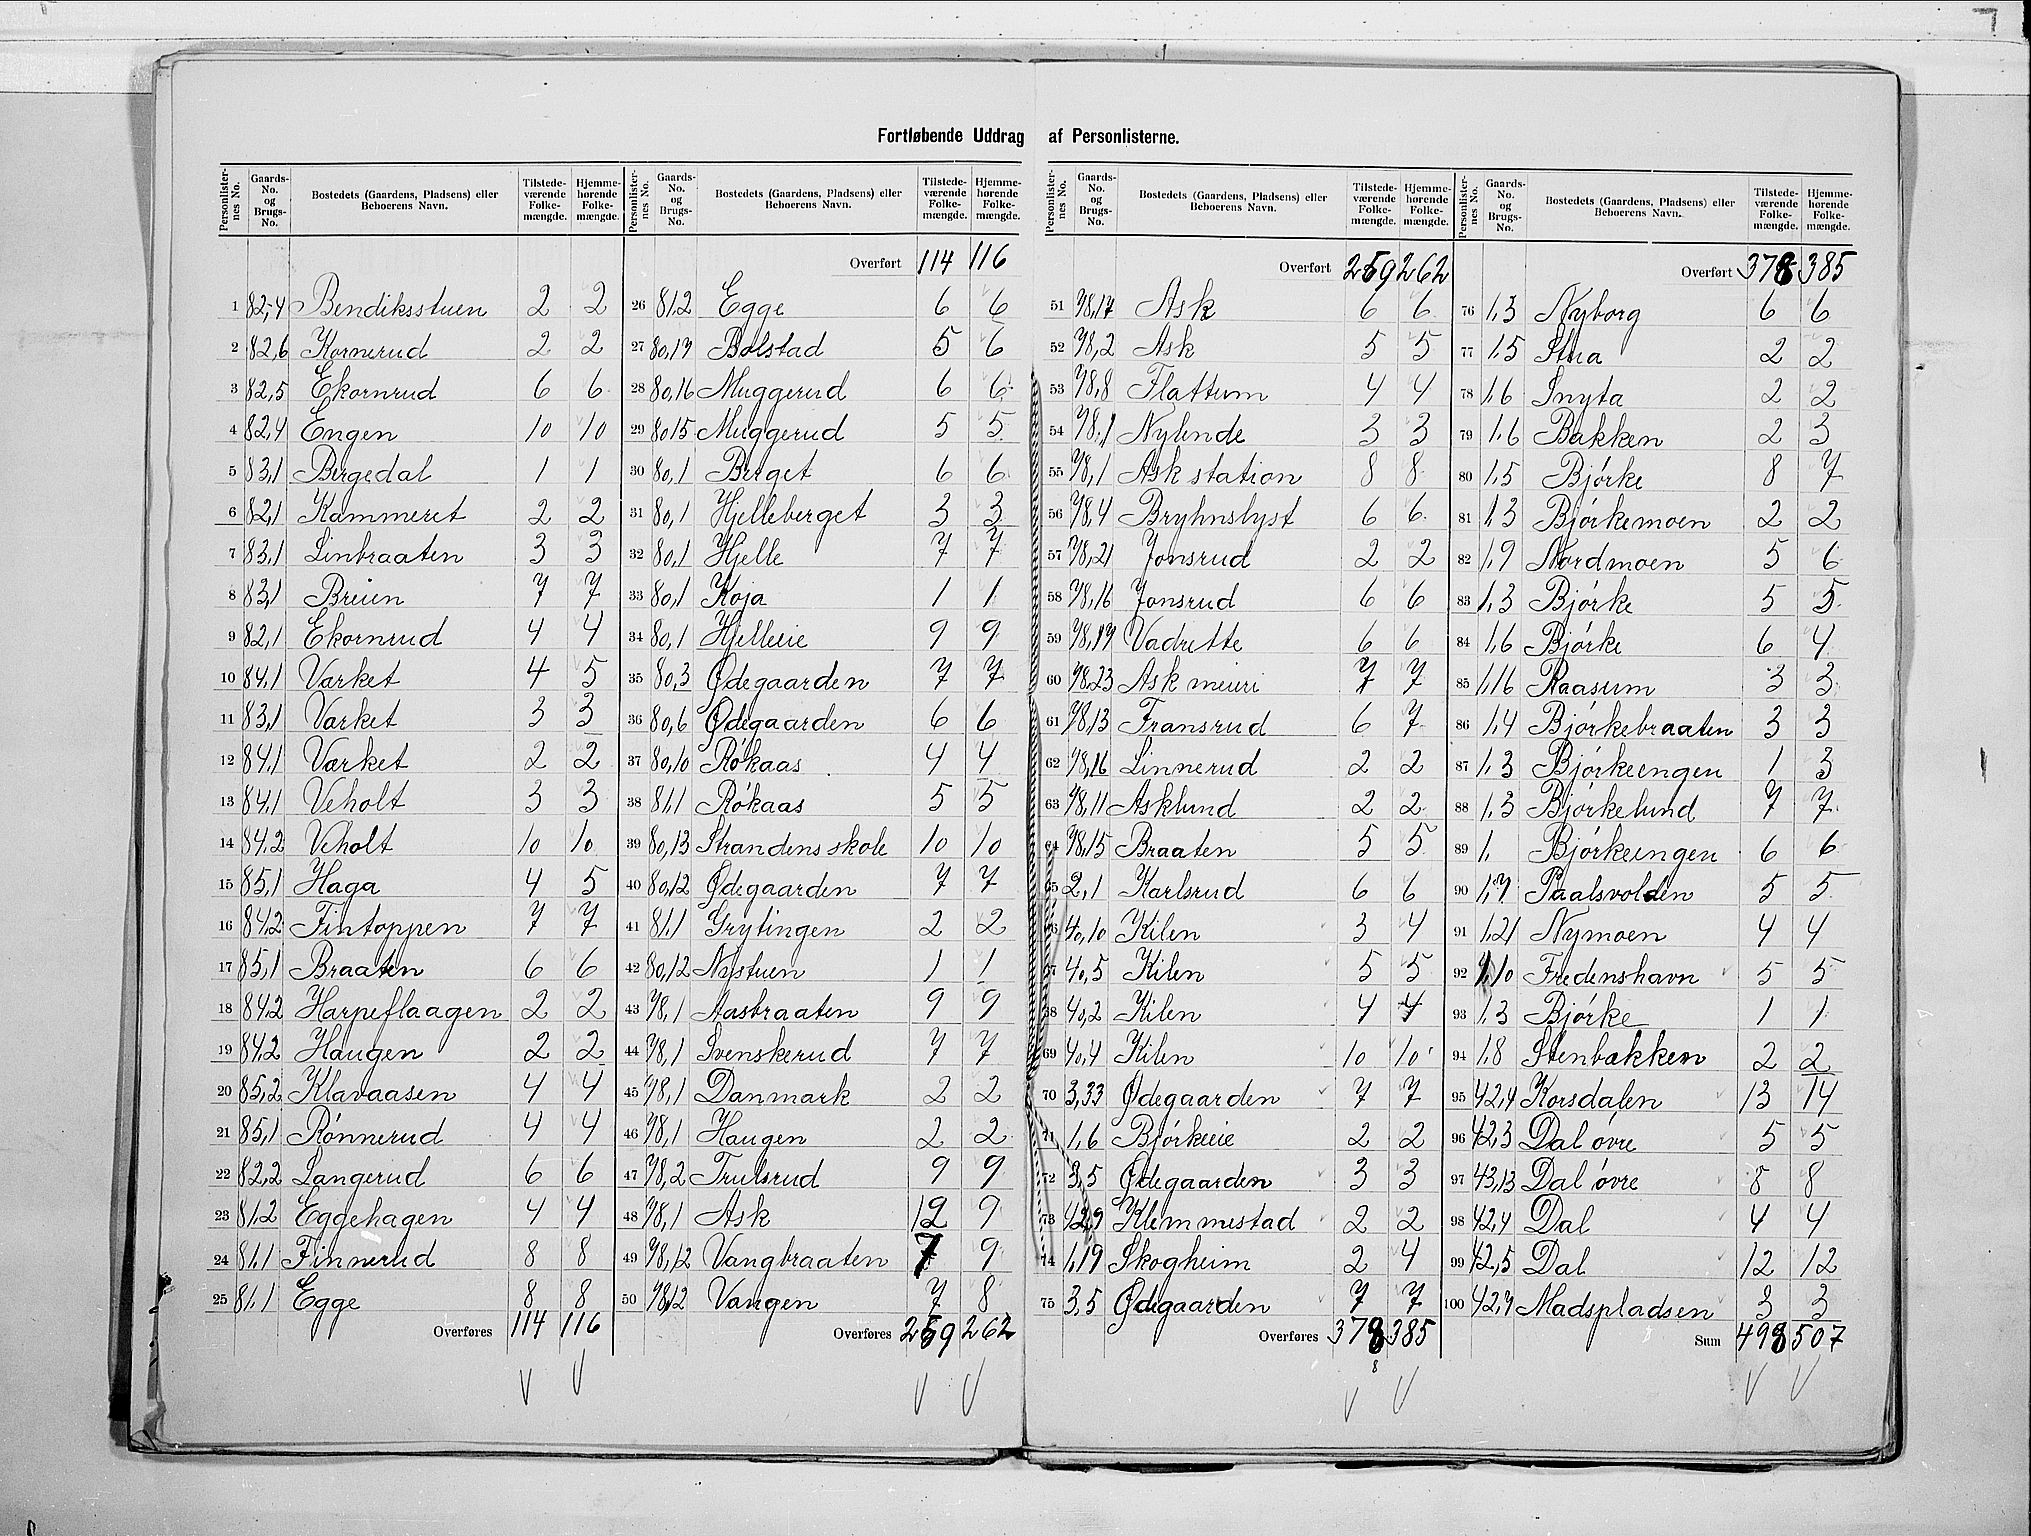 Fortløbende Uddrag af Personlisterne.
Personlister-nes No. Gaards-No. og Brugs-No. Bostedets (Gaardens, Pladsens) eller Beboerens Navn. Tilstede-værende Folke-mængde. Hjemme-hørende Folke-mængde.
1 82,4 Bendiksstuen 2 2
2 82,6 Kornerud 2 2
3 82,5 Ekornrud 6 6
4 82,4 Engen 10 10
5 83,1 Bergedal 1 1
6 82,1 Kammeret 2 2
7 83,1 Linbraaten 3 3
8 83,1 Breien 7 7
9 82,1 Ekornrud 4 4
10 84,1 Værket 4 5
11 83,1 Værket 3 3
12 84,1 Værket 2 2
13 84,1 Veholt 3 3
14 84,2 Veholt 10 10
15 85,1 Haga 4 5
16 84,2 Fintoppen 7 7
17 85,1 Braaten 6 6
18 84,2 Harpeflaagen 2 2
19 84,2 Haugen 2 2
20 85,2 Klavaasen 4 4
21 85,1 Rønnerud 4 4
22 82,2 Langerud 6 6
23 81,2 Eggehagen 4 4
24 81,1 Finnerud 8 8
25 81,1 Egge 8 8
Overføres 114 116
Personlister-nes No. Gaards-No. og Brugs-No. Bostedets (Gaardens, Pladsens) eller Beboerens Navn. Tilstede-værende Folke-mængde. Hjemme-hørende Folke-mængde.
Overført 114 116
26 81,2 Egge 6 6
27 80,19 Bolstad 5 6
28 80,16 Muggerud 6 6
29 80,15 Muggerud 5 5
30 80,1 Berget 6 6
31 80,1 Hjelleberget 3 3
32 80,1 Hjelle 7 7
33 80,1 Koja 1 1
34 80,1 Hjelleeie 9 9
35 80,3 Ødegaarden 7 7
36 80,6 Ødegaarden 6 6
37 80,10 Røkaas 4 4
38 81,1 Røkaas 5 5
39 80,13 Strandens skole 10 10
40 80,12 Ødegaarden 7 7
41 81,1 Grytingen 2 2
42 80,12 Næstuen 1 1
43 78,1 Aasbraaten 9 9
44 78,1 Svenskerud 7 7
45 78,1 Danmark 2 2
46 78,1 Haugen 2 2
47 78,2 Trulsrud 9 9
48 78,1 Ask 12 9
49 78,12 Vangbraaten 7 9
50 78,12 Vangen 7 8
Overføres 259 262
Personlister-nes No. Gaards-No. og Brugs-No. Bostedets (Gaardens, Pladsens) eller Beboerens Navn. Tilstede-værende Folke-mængde. Hjemme-hørende Folke-mængde.
Overført 259 262
51 78,17 Ask 6 6
52 78,2 Ask 5 5
53 78,8 Flattum 4 4
54 78,1 Nylende 3 3
55 78,1 Ask station 8 8
56 78,4 Bryhnslyst 6 6
57 78,21 Jonsrud 2 2
58 78,16 Jonsrud 6 6
59 78,19 Vadrette 6 6
60 78,23 Ask meieri 7 7
61 78,13 Fransrud 6 7
62 78,16 Linnerud 2 2
63 78,11 Asklund 2 2
64 78,15 Braaten 5 5
65 2,1 Karlsrud 6 6
66 40,10 Kilen 3 4
67 40,5 Kilen 5 5
68 40,2 Kilen 4 4
69 40,4 Kilen 10 10
70 3,33 Ødegaarden 7 7
71 1,6 Bjørkeeie 2 2
72 3,5 Ødegaarden 3 3
73 42,9 Klemmestad 2 2
74 1,19 Skogheim 2 4
75 3,5 Ødegaarden 7 7
Overføres 378 385
8
Personlister-nes No. Gaards-No. og Brugs-No. Bostedets (Gaardens, Pladsens) eller Beboerens Navn. Tilstede-værende Folke-mængde. Hjemme-hørende Folke-mængde.
Overført 378 385
76 1,3 Nyborg 6 6
77 1,5 Stua 2 2
78 1,6 Snyta 2 2
79 1,6 Bakken 2 3
80 1,5 Bjørke 8 7
81 1,3 Bjørkemoen 2 2
82 1,9 Nordmoen 5 6
83 1,3 Bjørke 5 5
84 1,6 Bjørke 6 4
85 1,16 Raasum 3 3
86 1,4 Bjørkebraaten 3 3
87 1,3 Bjørkeengen 1 3
88 1,3 Bjørkelund 7 7
89 1, Bjørkeengen 6 6
90 1,7 Paalsvolden 5 5
91 1,21 Nymoen 4 4
92 1,10 Fredenshavn 5 5
93 1,3 Bjørke 1 1
94 1,8 Stenbakken 2 2
95 42,4 Korsdalen 13 14
96 42,3 Dal øvre 5 5
97 43,13 Dal øvre 8 8
98 42,4 Dal 4 4
99 42,5 Dal 12 12
100 42,7 Madspladsen 3 3
Sum 498 507